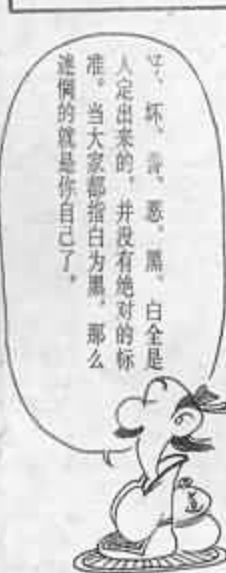 好、坏、善、恶、黑、白全是
人定出来的，并没有绝对的标
准。当大家都指白为黑，那么
迷惘的就是你自己了。